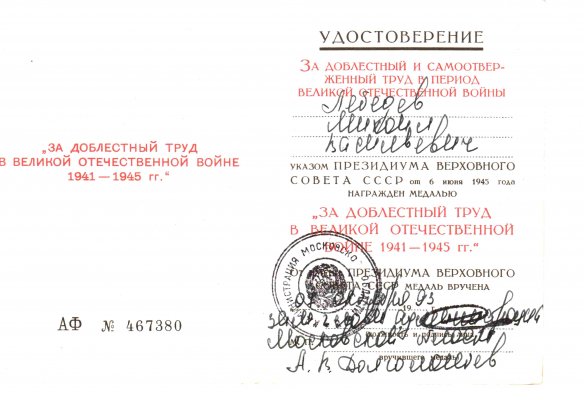 „ЗА ДОБЛЕСТНЫЙ ТРУД
В ВЕЛИКОЙ ОТЕЧЕСТВЕННОЙ ВОЙНЕ
1941—1945 гг.“
АФ № 467380
УДОСТОВЕРЕНИЕ
ЗА ДОБЛЕСТНЫЙ И САМООТВЕР-
ЖЕННЫЙ ТРУД В ПЕРИОД
ВЕЛИКОЙ ОТЕЧЕСТВЕННОЙ ВОЙНЫ
Лебедев
Михаил
Васильевич
УКАЗОМ ПРЕЗИДИУМА ВЕРХОВНОГО
СОВЕТА СССР от 6 июня 1945 года
НАГРАЖДЕН МЕДАЛЬЮ
„ЗА ДОБЛЕСТНЫЙ ТРУД
В ВЕЛИКОЙ ОТЕЧЕСТВЕННОЙ
ВОЙНЕ 1941—1945 гг.“
ПРЕЗИДИУМА ВЕРХОВНОГО
СОВЕТА СССР МЕДАЛЬ ВРУЧЕНА
93
Московской области
А. В. Долголаптев
вручившего медаль